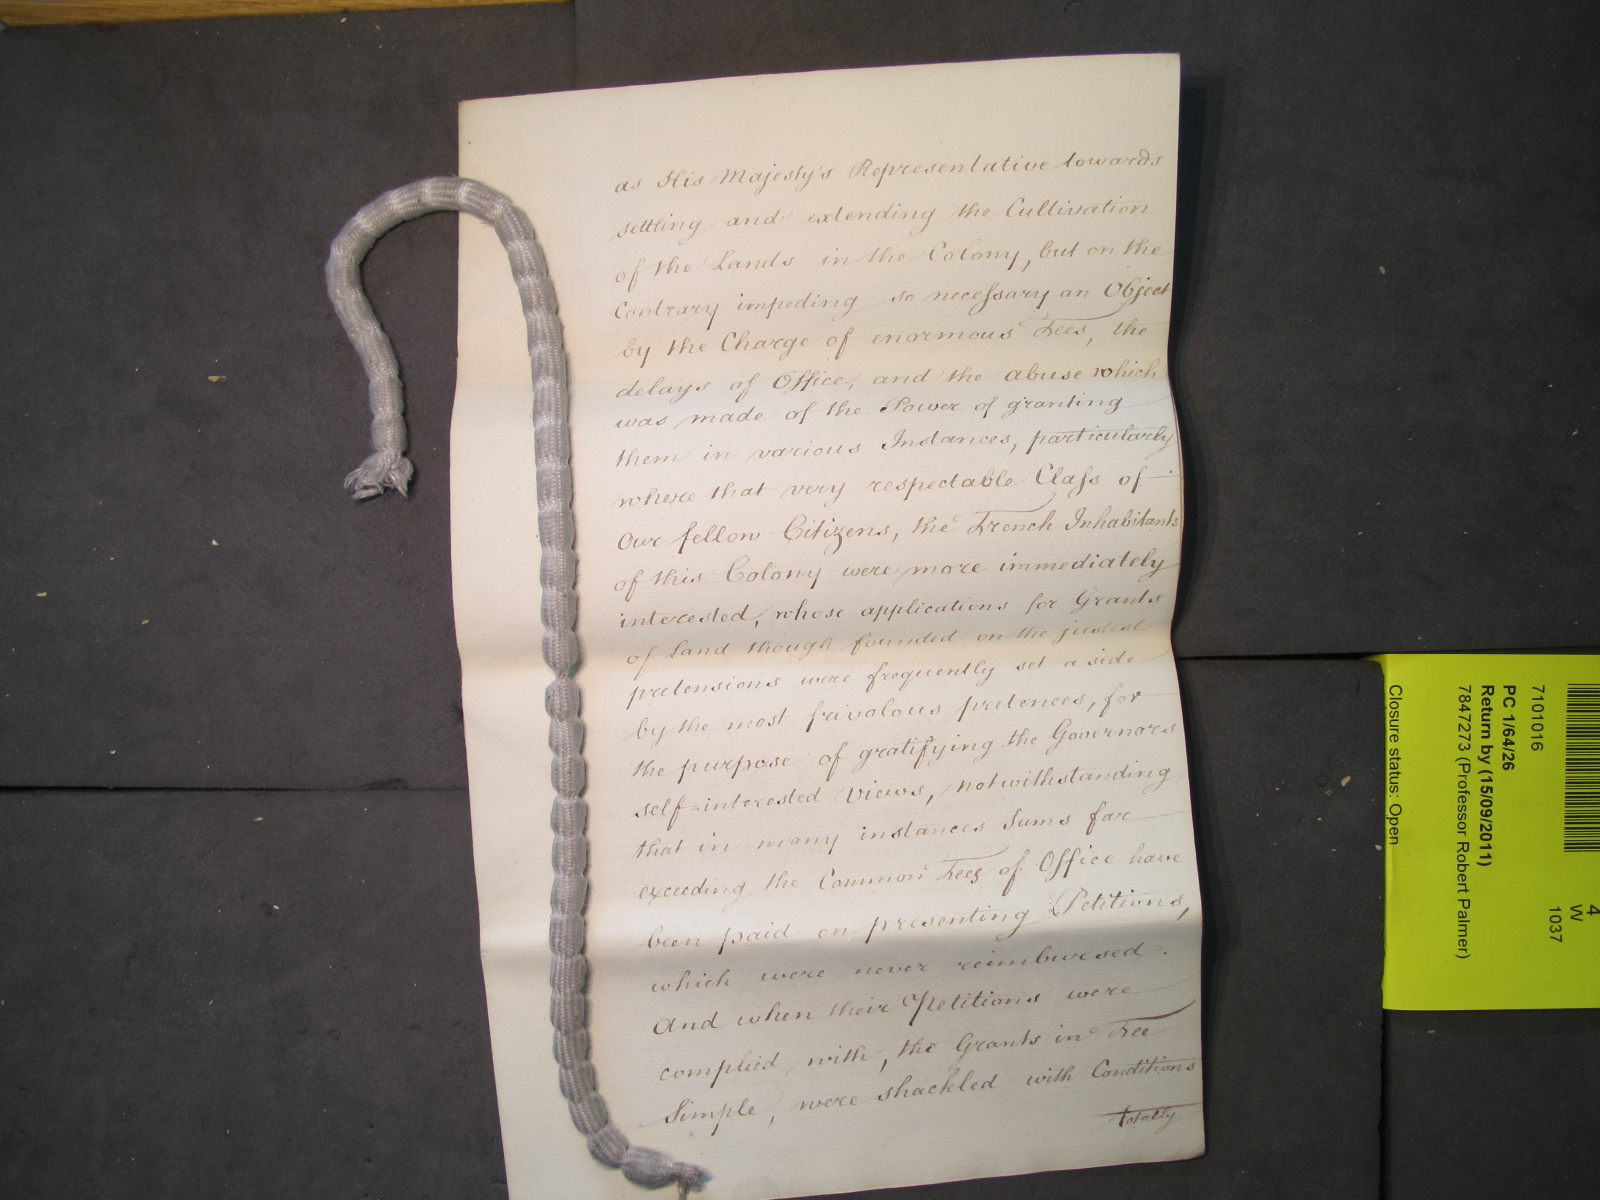 as His Majesty's Representative towards
settling and extending the Cultivation
of the Lands in the Colony, but on the
Contrary impeding so necessary an Object
by the Charge of enormous Fees, the
delays of Office, and the abuse which
was made of the Power of granting
them in various Instances, particularly
where that very respectable Class of
Our fellow Citizens, the French Inhabitants
of this Colony were more immediately
interested, whose applications for Grants
of Land though founded on the justest
pretensions were frequently set a side
by the most frivolous pretences, for
the purpose of gratifying the Governors
self=interested Views, notwithstanding
that in many instances Sums far
exceeding the Common Fees of Office have
been paid on presenting Petitions,
which were never reimbursed.
And when their Petitions were
complied with, the Grants in Fee
Simple, were shackled with Conditions
totally
4
W
1037
7101016
PC 1/64/26
Return by (15/09/2011)
7847273 (Professor Robert Palmer)
Closure status: Open